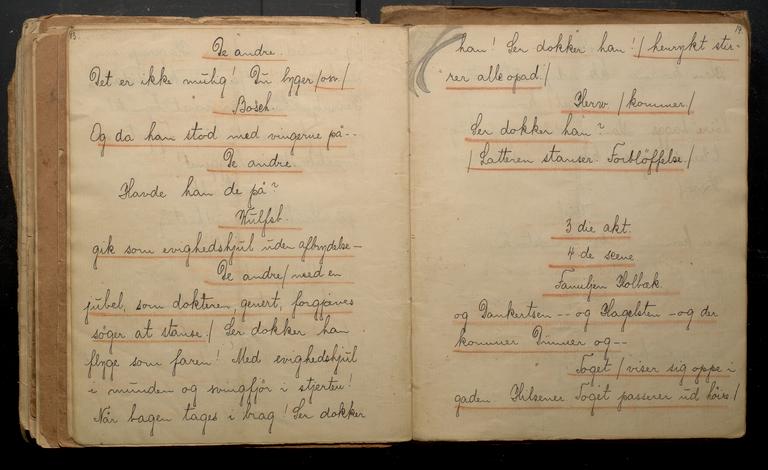 13.
De andre.
Det er ikke mulig! Du lyger /osv/
Bosch.
Og da han stod med vingerne på--
De andre
Havde han de på?
Wulfst.
gik som evighedshjul uden afbrydelse-
De andre/ med en
jubel, som doktoren, genert, forgjæves
søger at stanse./ Ser dokker han
flyge som faren! Med evighedshjul
i munden og svingfjør i stjerten!
Når bagen tages i brag! Ser dokker
14.
han! Ser dokker han!/ henrykt stir-
rer alle opad./
Herw /kommer/
Ser dokker han?
/Latteren stanser. Forbløffelse./
3 die akt.
4 de scene
Familjen Holbæk.
og Dankertsen -- og Hagelsten - og der
kommer Dinner og--
Toget /viser sig oppe i
gaden Hilsener Toget passerer ud høire/